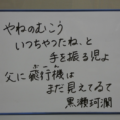 やねのむこう
いつちやつたね、と
手を振る児よ
父に飛行機は
まだ見えてるて
黒瀬珂瀾